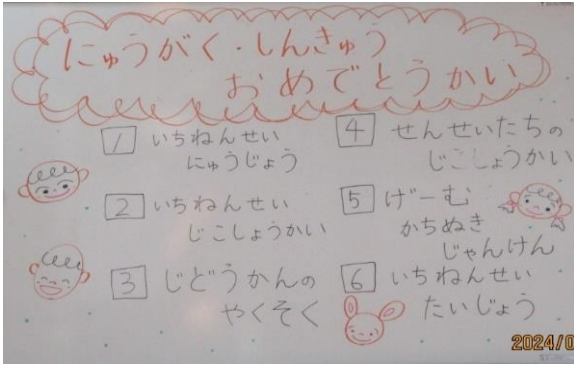 にゅうがく・しんきゅう
おめでとうかい
1 いちねんせい
にゅうじょう
2 いちねんせい
じこしょうかい
3 じどうかんの
やくそく
4 せんせいたちの
じこしょうかい
5 げーむ
かちぬき
じゃんけん
6 いちねんせい
たいじょう
2024/0